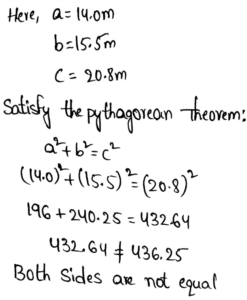 Here, a=14.0m
b=15.5m
c = 20.8m
Satisfy the pythagorean theorem:
a²+b²=c²
(14.0)²+(15.5)²=(20.8)²
196+240.25=432.64
432.64≠436.25
Both sides are not equal